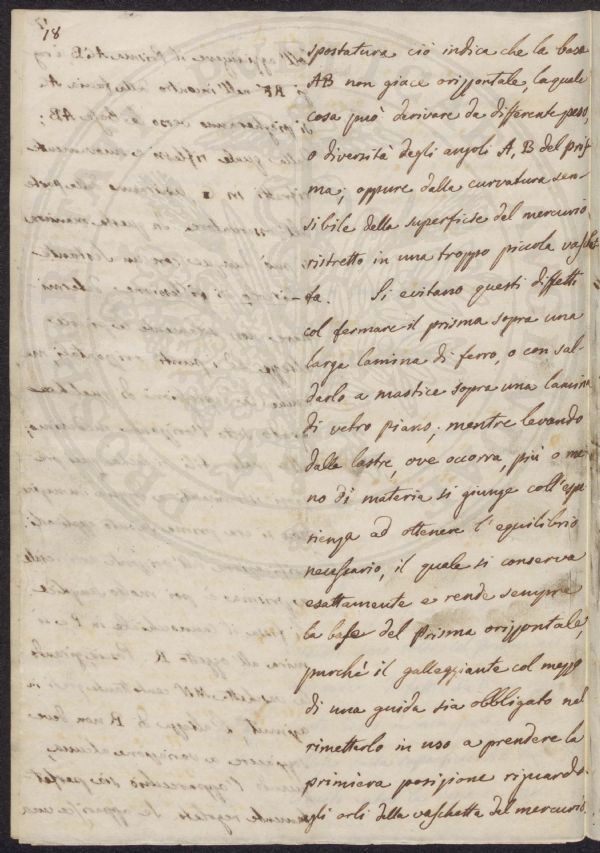 18
spostatura ciò indica che la base
AB non giace orizzontale, la quale
cosa può derivare da differente peso,
o diversità degli angoli A, B del pris-
ma; oppure dalla curvatura sen-
sibile della superficie del mercurio
ristretto in una troppo piccola vaschet-
ta. Si evitano questi diffetti
col fermare il prisma sopra una
larga lamina di ferro, o con sal-
darlo a mastice sopra una lamina
di vetro piano; mentre levando
dalla lastre, ove occorra, più o me-
no di materia si giunge coll'espe-
rienza ad ottenere l'equilibrio
necessario, il quale si conserva
esattamente e rende sempre
la base del Prisma orizzontale,
purché il galleggiante col mezzo
di una guida sia obbligato nel
rimetterlo in uso a prendere la
primiera posizione riguardo
agli orli della vaschetta del mercurio.